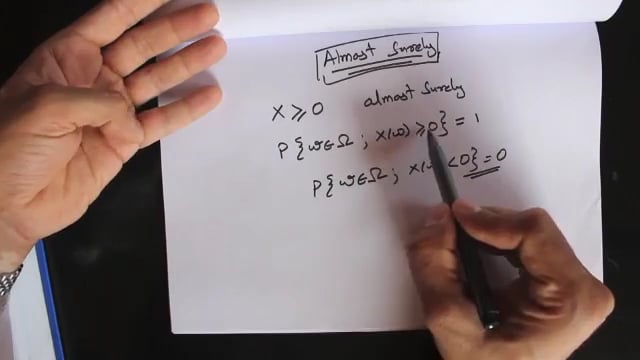 Almost Surely
X ≥ 0 almost surely
P{ω∈Ω ; X(ω) ≥ 0} = 1
P{ω∈Ω ; X(ω) < 0} = 0